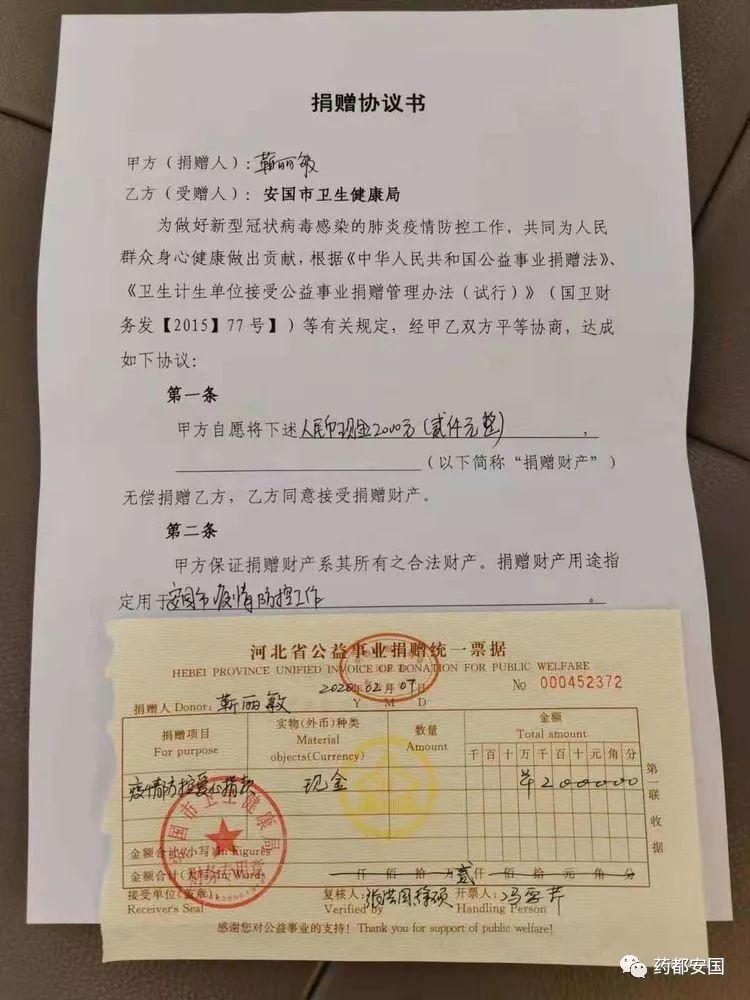 捐赠协议书
甲方（捐赠人）：靳丽敏
乙方（受赠人）：安国市卫生健康局
为做好新型冠状病毒感染的肺炎疫情防控工作，共同为人民
群众身心健康做出贡献，根据《中华人民共和国公益事业捐赠法》、
《卫生计生单位接受公益事业捐赠管理办法（试行）》（国卫财
务发【2015】77号】）等有关规定，经甲乙双方平等协商，达成
如下协议：
第一条
甲方自愿将下述人民币现金2000元（贰仟元整），
（以下简称“捐赠财产”）
无偿捐赠乙方，乙方同意接受捐赠财产。
第二条
甲方保证捐赠财产系其所有之合法财产。捐赠财产用途指
定用于安国市疫情防控工作。
河北省公益事业捐赠统一票据
HEBEI PROVINCE UNIFIED INVOICE OF DONATION FOR PUBLIC WELFARE
2020年02月07日
Y M D
№ 000452372
捐赠人Donor：靳丽敏
捐赠项目 实物(外币)种类 数量 金额
For purpose Material objects(Currency) Amount Total amount
千百十万千百十元角分
疫情防控爱心捐款 现金 ¥200000
第一联收据
金额合计(小写)In Figures
金额合计(大写)In Words 仟佰拾万贰仟佰拾元角分
安国市卫生健康局
财务专用章
接受单位(盖章)： 复核人： 开票人：
Receiver's Seal Verified by Handling Person
感谢您对公益事业的支持！Thank you for support of public welfare!
药都安国